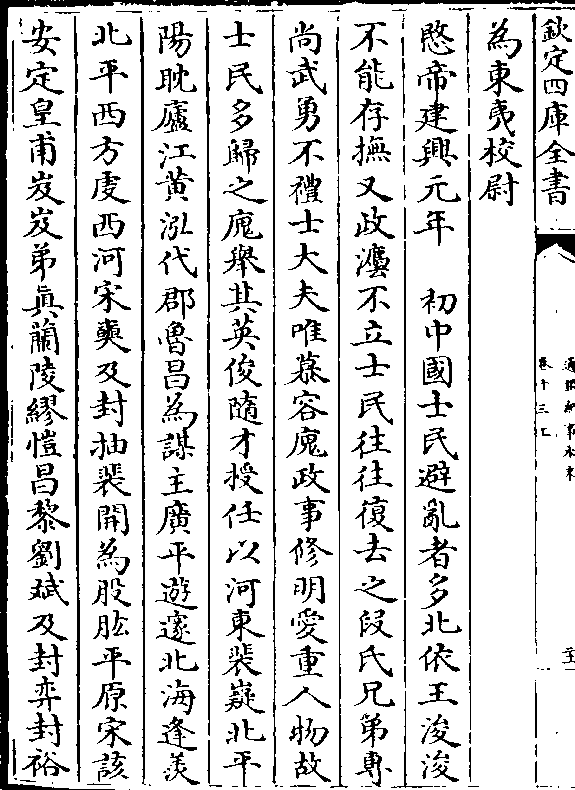 欽定四庫全書
通鑑紀事本末
卷十三上
為東夷校尉
愍帝建興元年　初中國士民避亂者多北依王浚浚
不能存撫又政灋不立士民往往復去之段氏兄弟專
尚武勇不禮士大夫唯慕容廆政事修明愛重人物故
士民多歸之廆舉其英俊隨才授任以河東裴嶷北平
陽耽廬江黄泓代郡魯昌為謀主廣平遊邃北海逢羨
北平西方虔西河宋奭及封抽裴開為股肱平原宋該
安定皇甫岌岌弟眞蘭陵繆愷昌黎劉斌及封弈封裕